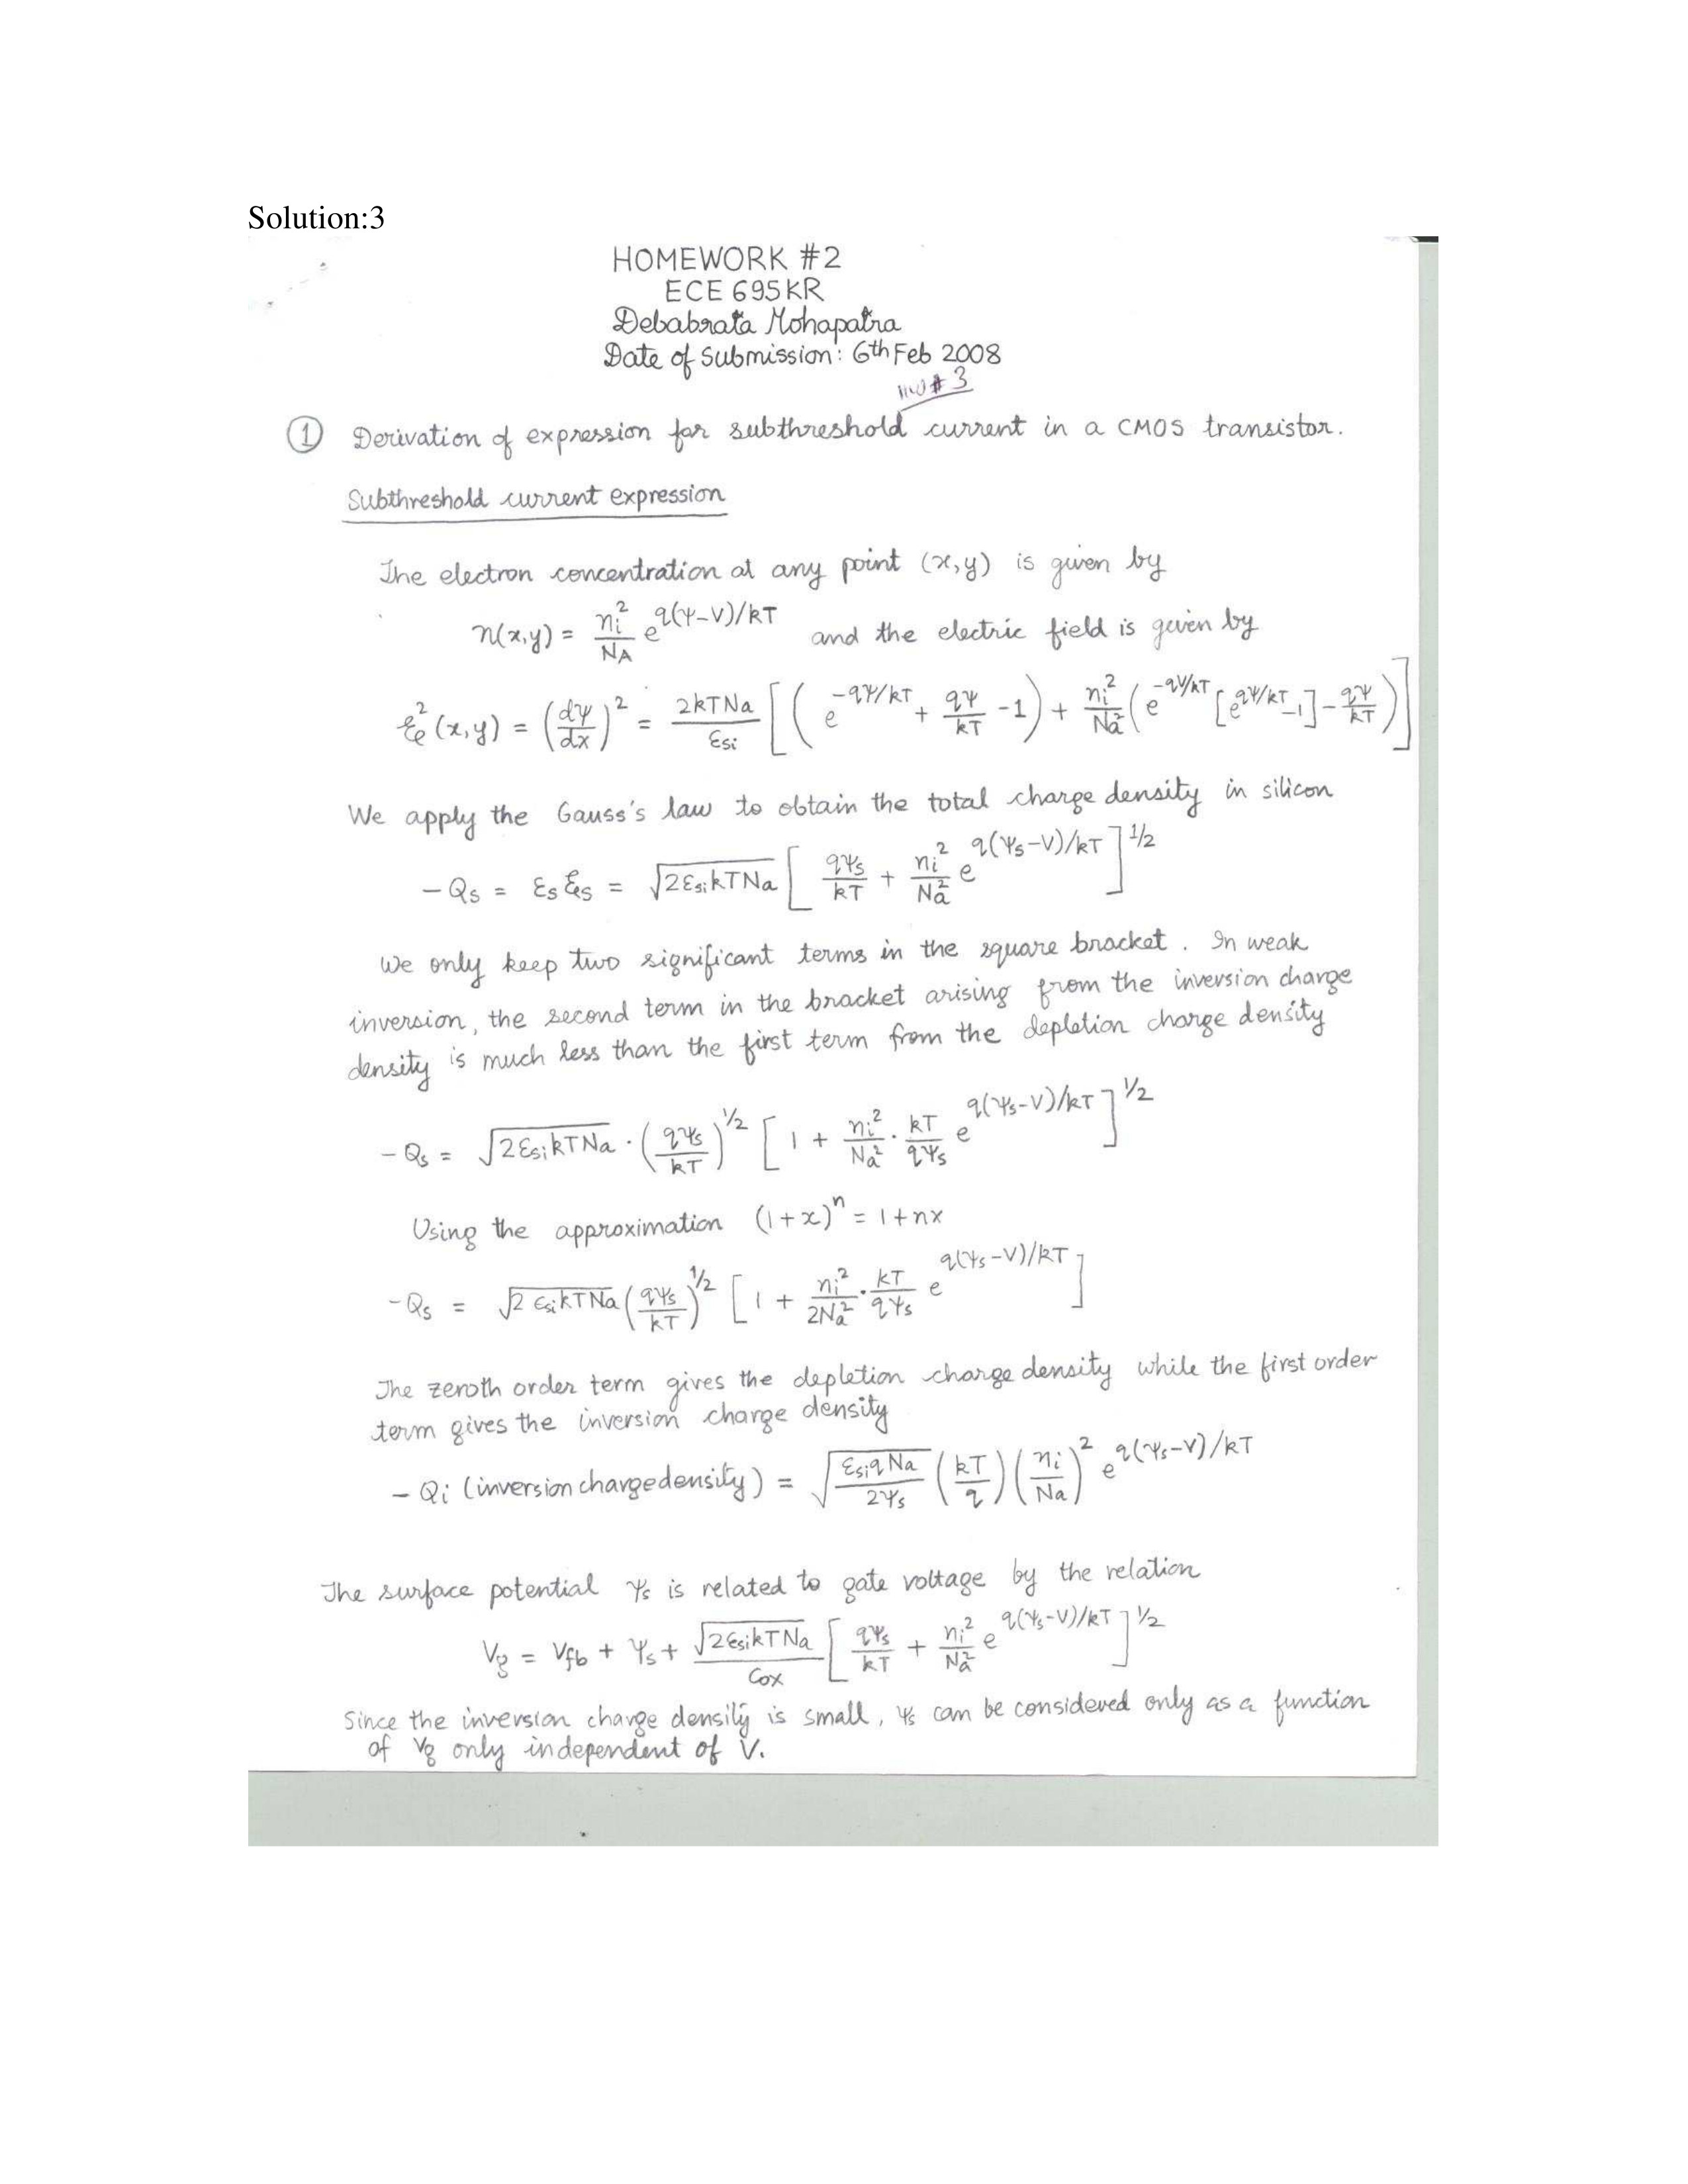 Solution:3
HOMEWORK #2
ECE 695KR
Debabrata Mohapatra
Date of Submission: 6th Feb 2008
# 3
① Derivation of expression for subthreshold current in a CMOS transistor.
Subthreshold current expression
The electron concentration at any point (x,y) is given by
n(x,y) = nᵢ²/N_A e^{q(ψ-V)/kT} and the electric field is given by
ℰ²(x,y) = (dψ/dx)² = 2kTNa/εsi [(e^{-qψ/kT} + qψ/kT - 1) + nᵢ²/Na² (e^{-qV/kT} [e^{qψ/kT} - 1] - qψ/kT)]
We apply the Gauss's law to obtain the total charge density in silicon
-Qs = εs ℰs = √(2εsi kTNa) [qψs/kT + nᵢ²/Na² e^{q(ψs-V)/kT}]^{1/2}
We only keep two significant terms in the square bracket. In weak
inversion, the second term in the bracket arising from the inversion charge
density is much less than the first term from the depletion charge density
-Qs = √(2εsi kTNa) · (qψs/kT)^{1/2} [1 + nᵢ²/Na² · kT/qψs e^{q(ψs-V)/kT}]^{1/2}
Using the approximation (1+x)ⁿ = 1+nx
-Qs = √(2εsi kTNa) (qψs/kT)^{1/2} [1 + nᵢ²/2Na² · kT/qψs e^{q(ψs-V)/kT}]
The zeroth order term gives the depletion charge density while the first order
term gives the inversion charge density
-Qi (inversion charge density) = √(εsi qNa/2ψs) (kT/q) (nᵢ/Na)² e^{q(ψs-V)/kT}
The surface potential ψs is related to gate voltage by the relation
Vg = Vfb + ψs + √(2εsi kTNa)/Cox [qψs/kT + nᵢ²/Na² e^{q(ψs-V)/kT}]^{1/2}
Since the inversion charge density is small, ψs can be considered only as a function
of Vg only independent of V.